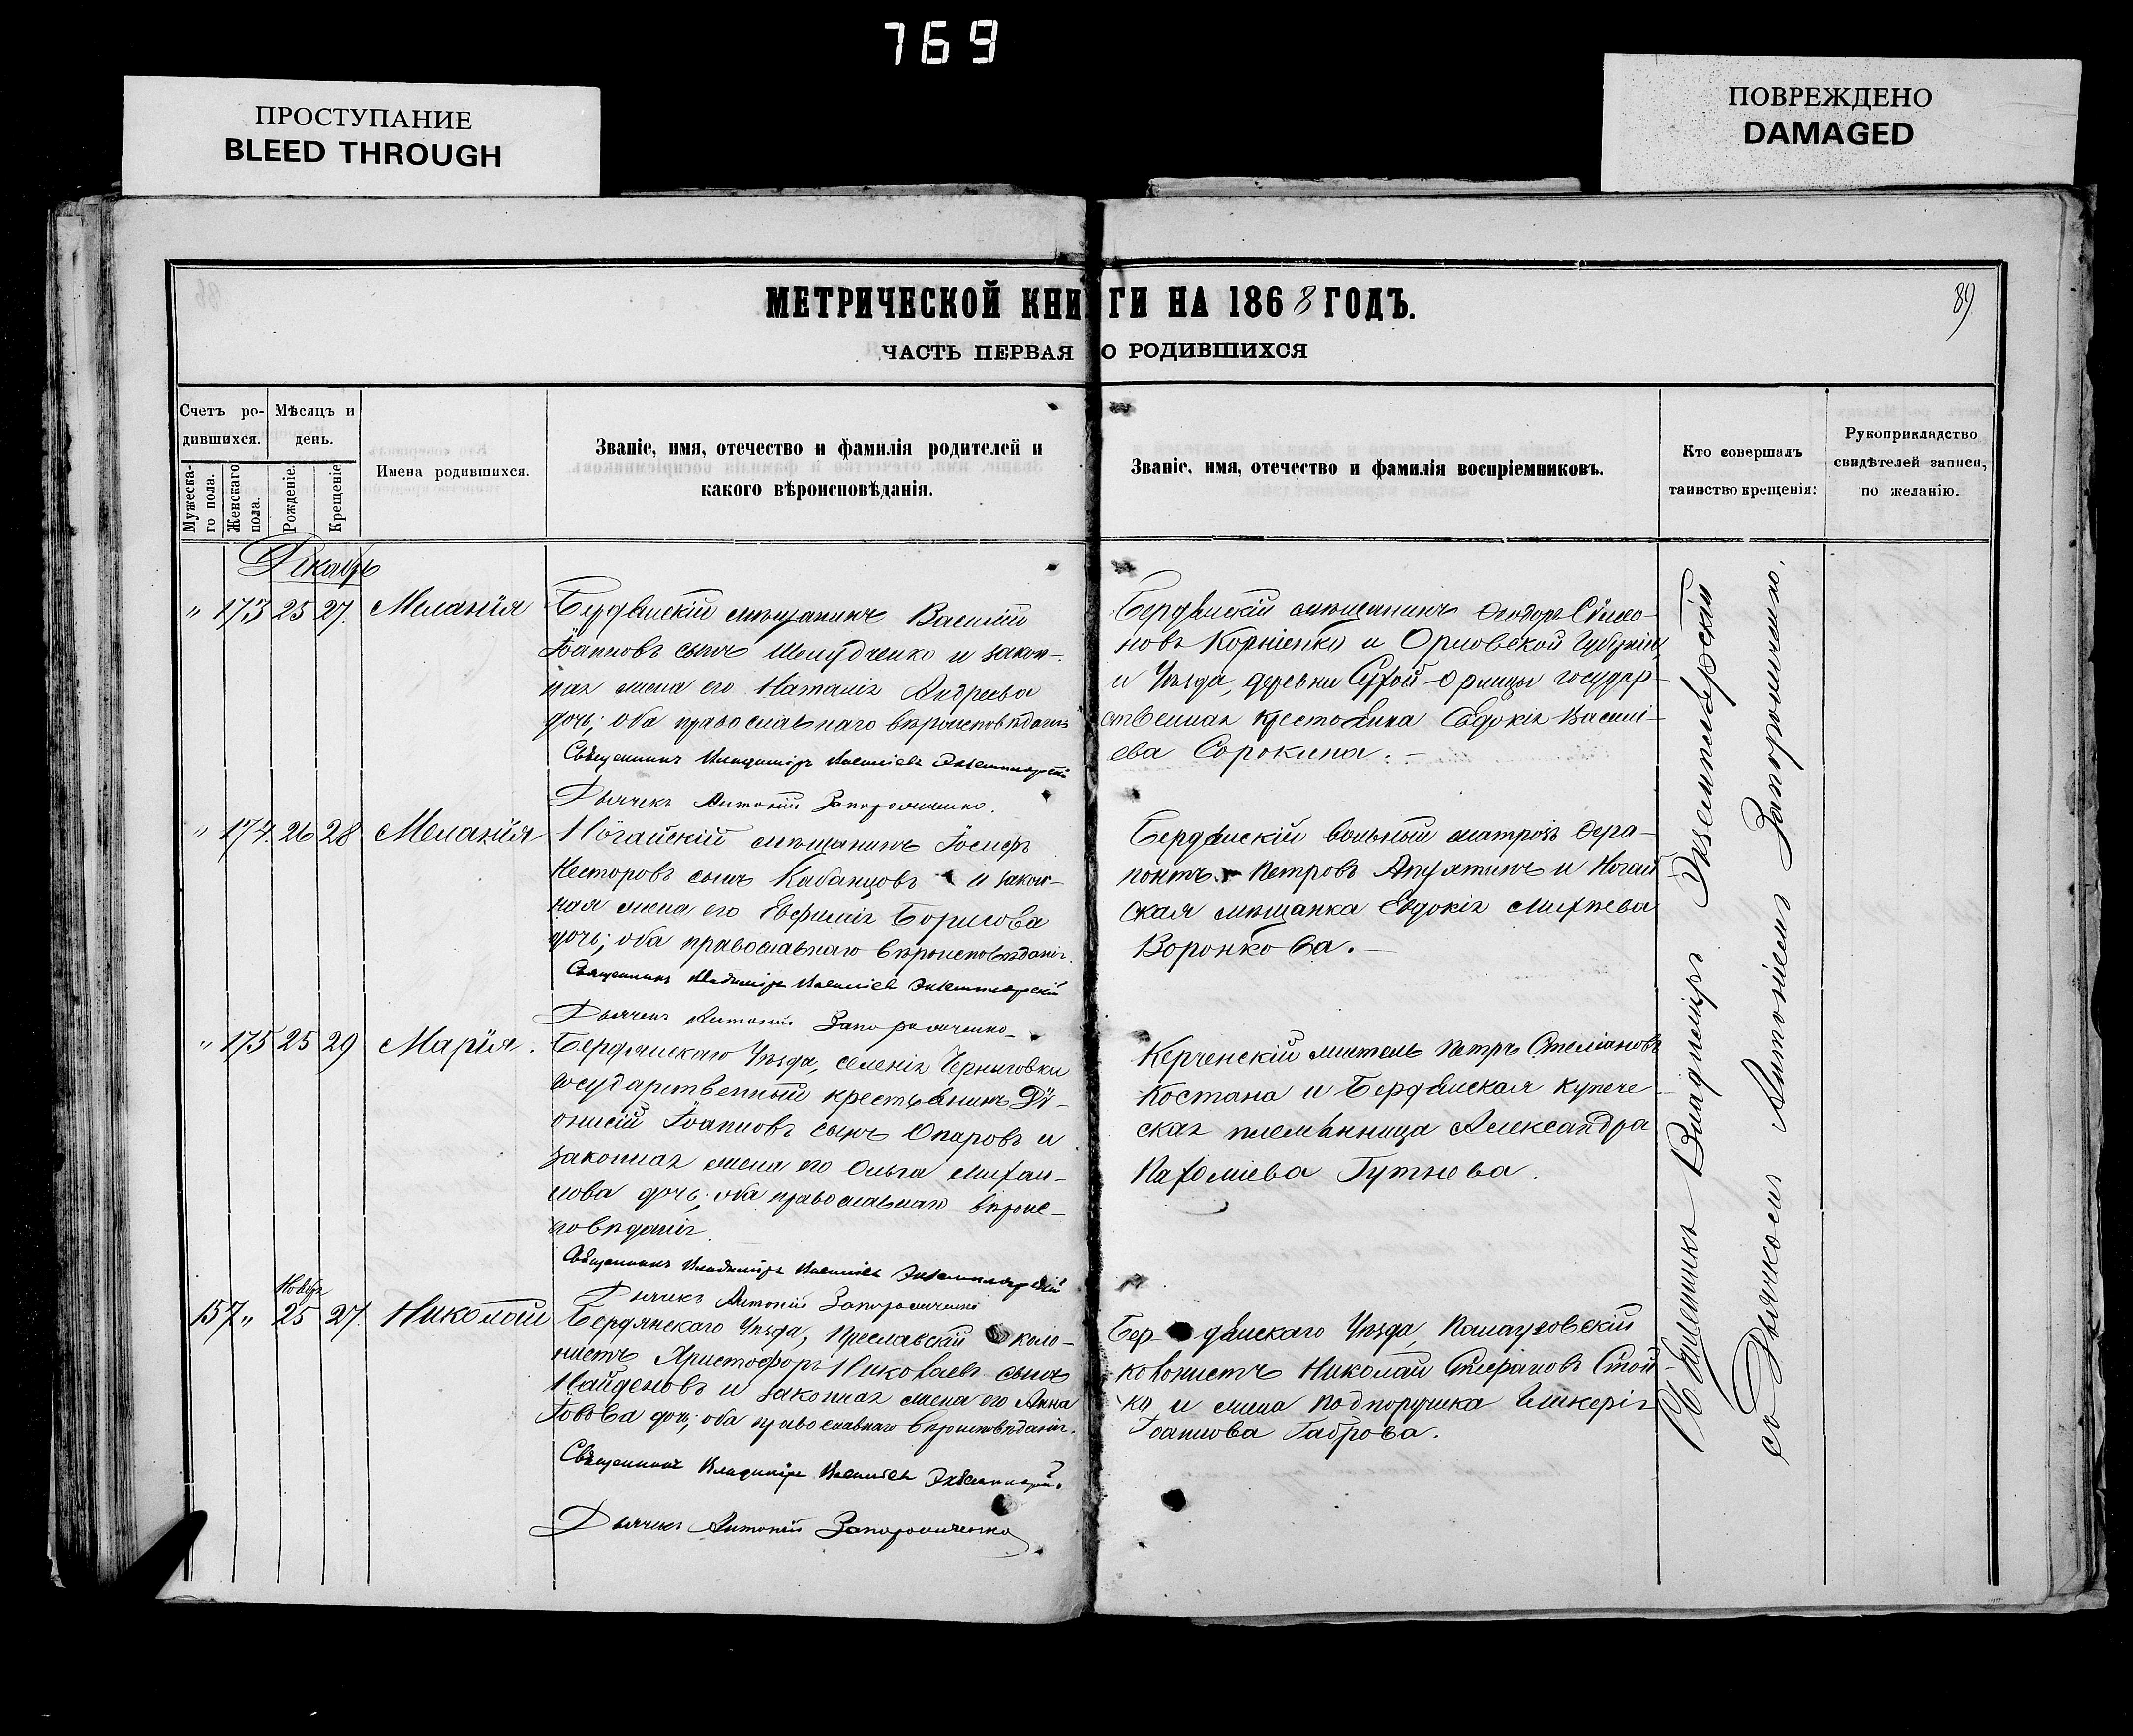 769
ПРОСТУПАНИЕ
BLEED THROUGH
ПОВРЕЖДЕНО
DAMAGED
МЕТРИЧЕСКОЙ КНИГИ НА 1868 ГОДЪ.
89
ЧАСТЬ ПЕРВАЯ О РОДИВШИХСЯ
Счетъ ро-
дившихся.
Мужеска-
го пола.
Женскаго
пола.
Мѣсяцъ и
день.
Рожденіе.
Крещеніе
Имена родившихся.
Званіе, имя, отечество и фамилія родителей и
какого вѣроисповѣданія.
Званіе, имя, отечество и фамилія воспріемниковъ.
Кто совершалъ
таинство крещенія:
Рукоприкладство
свидѣтелей записи,
по желанію.
Декабрь
" 173 25 27. Меланія
Бердянскій мѣщанинъ Василій
Іоанновъ сынъ Шелудченко и закон-
ная жена его Наталія Андреева
дочь; оба православнаго вѣроисповѣданія
Священникъ Владиміръ Экземплярскій
Дьячекъ Антоній Запорожченко.
Бердянскій мѣщанинъ Ѳеодоръ Симео-
новъ Корніенко и Орловской Губерніи,
и Уѣзда, деревни Сухой-Орлицы государ-
ственная крестьянка Евдокія Василі-
ева Сорокина. -
" 174. 26 28 Меланія
Ногайскій мѣщанинъ Іосифъ
Несторовъ сынъ Кабанцовъ и закон-
ная жена его Евфимія Борисова
дочь; оба православнаго вѣроисповѣданія.
Священникъ Владиміръ Экземплярскій
Дьячекъ Антоній Запорожченко
Бердянскій вольный матрозъ Ѳера-
понтъ Петровъ Апухтинъ и Ногай
ская мѣщанка Евдокія Михѣева
Воронкова. -
" 175 25 29 Марія.
Бердянскаго Уѣзда, селенія Черниговки
государственный крестьянинъ Ді-
онисій Іоанновъ сынъ Опаровъ и
законная жена его Ольга Михаи-
лова дочь; оба православнаго вѣроис-
повѣданія.
Священникъ Владиміръ Экземплярскій
Дьячекъ Антоній Запорожченко
Керченскій житель Петръ Стеліановъ
Костана и Бердянская купече-
ская племянница Александра
Пахоміева Гутнева.
Ноябрь
157 " 25 27. Николай
Бердянскаго Уѣзда, Преславскій коло-
нистъ Христофоръ Николаевъ сынъ
Найденовъ и законная жена его Анна
Іовова дочь; оба православнаго вѣроисповѣданія.
Священникъ Владиміръ Экземплярскій.
Дьячекъ Антоній Запорожченко
Бер-дянскаго Уѣзда, Палаузовскій
колонистъ Николай Стефановъ Стой-
ко и жена подпоручика
Іоаннова Габрова.
Священникъ Владиміръ Экземплярскій
со Дьячкомъ Антоніемъ Запорожченко.